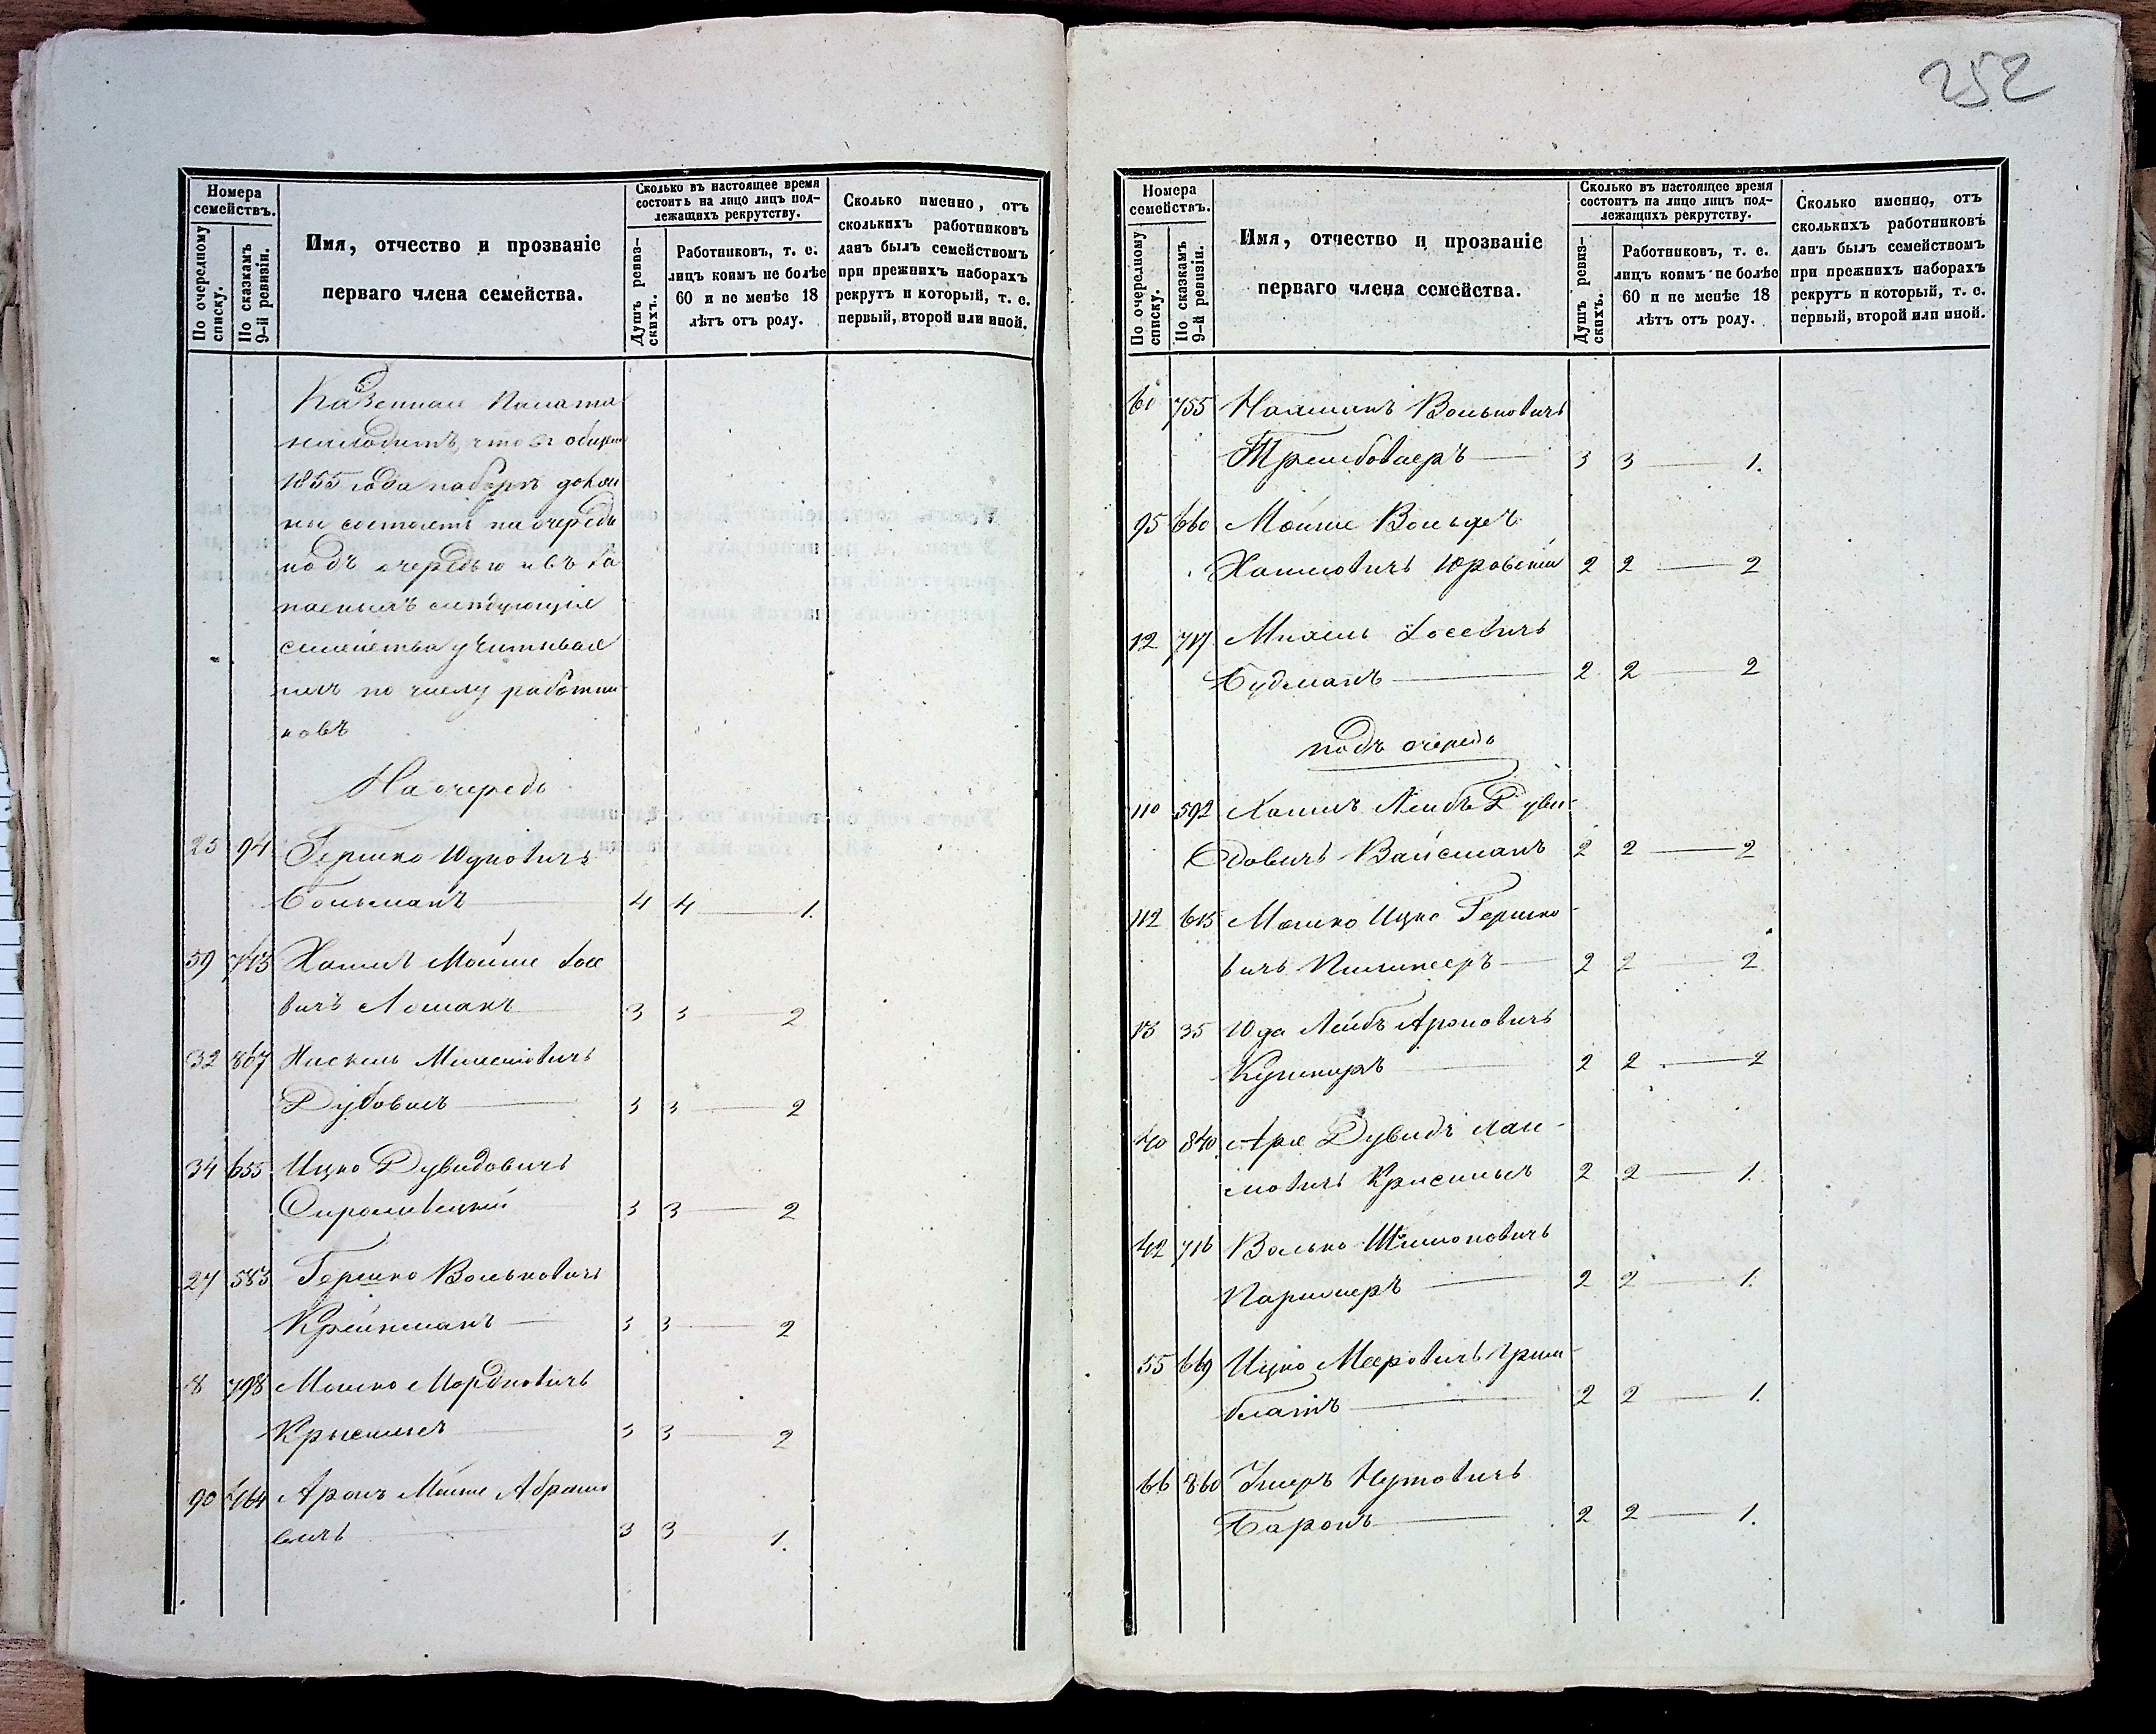 252
Номера семействъ.
По очередному списку.
По сказкамъ 9-й ревизіи.
Имя, отчество и прозваніе
перваго члена семейства.
Сколько въ настоящее время
состоитъ на лицо лицъ под-
лежащихъ рекрутству.
Душъ ревиз-
скихъ.
Работниковъ, т. е.
лицъ коимъ не болѣе
60 и не менѣе 18
лѣтъ отъ роду.
Сколько именно, отъ
сколькихъ работниковъ
данъ былъ семействомъ
при прежнихъ наборахъ
рекрутъ и который, т. е.
первый, второй или иной.
Казенная Палата
находитъ, что въ
1855 года наборъ
ны состоять на очереди
подъ очередью и въ за
пасныхъ слѣдующія
семейства учитывая
ихъ по числу работни
ковъ
На очередь
25 94 Гершко Ицковичъ
4 4 — 1.
59 743 Хаимъ Мойше Іосе
вичъ 3 3 — 2
32 867 Хаскель
Дубовисъ 3 3 — 2
34 655 Ицко Дувидовичъ
3 3 — 2
27 583 Гершко Вольковичъ
Крейнманъ 3 3 — 2
8 798 Мошко Мордковичъ
3 3 — 2
90 464 Аронъ Мойше Абрамо
вичъ 3 3 — 1.
Номера
семействъ.
По очередному списку.
По сказкамъ 9-й ревизіи.
Имя, отчество и прозваніе
перваго члена семейства.
Сколько въ настоящее время
состоитъ на лицо лицъ под-
лежащихъ рекрутству.
Душъ ревиз-
скихъ.
Работниковъ, т. е.
лицъ коимъ не болѣе
60 и не менѣе 18
лѣтъ отъ роду.
Сколько именно, отъ
сколькихъ работниковъ
данъ былъ семействомъ
при прежнихъ наборахъ
рекрутъ и который, т. е.
первый, второй или иной.
755 Вольковичъ
3 3 — 1.
95 660 Мойше Вольфъ
Хаимовичъ Юровскій 2 2 — 2
12 717 Михель Іосевичъ
Будманъ 2 2 — 2
подъ очередь
110 592 Хаимъ Лейбъ Дуви-
довичъ Вайсманъ 2 2 — 2
112 615 Мошко Ицко Гершко-
вичъ 2 2 — 2
13 35 Юда Лейбъ Ароновичъ
Кушниръ 2 2 — 2
40 840 Арье Дувидъ Хаи-
мовичъ 2 2 — 1.
42 716 Волько Шимоновичъ
2 2 — 1.
55 669 Ицко Мееровичъ Грин-
блатъ 2 2 — 1.
66 860
Баронъ 2 2 — 1.